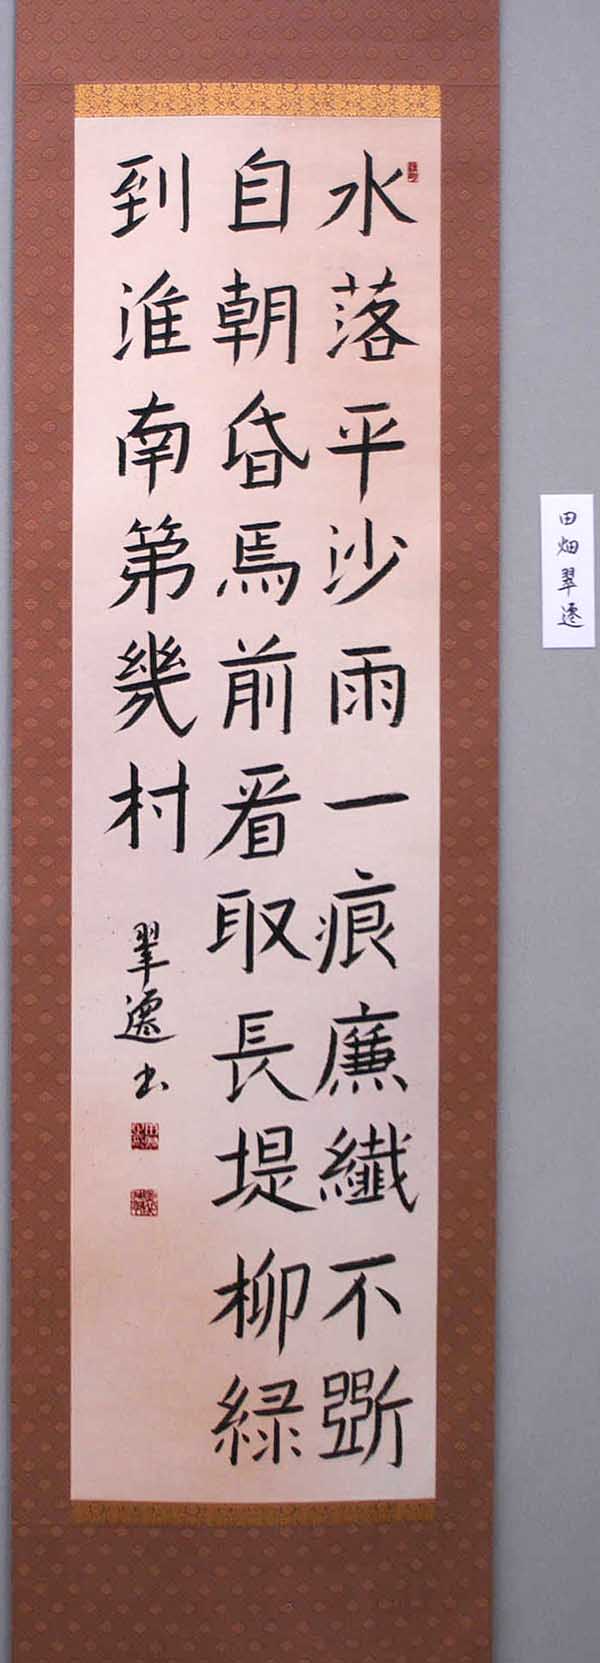 水落平沙雨一痕廉纎不斷
自朝昏馬前看取長堤柳緑
到淮南第幾村
翠遷書
田畑翠遷